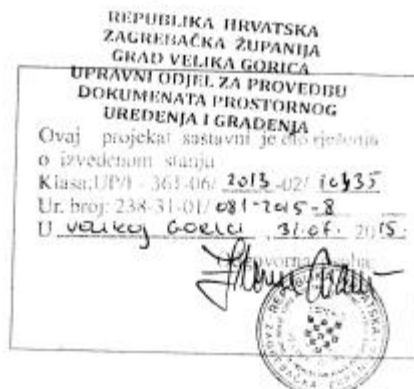 REPUBLIKA HRVATSKA
ZAGREBAČKA ŽUPANIJA
GRAD VELIKA GORICA
UPRAVNI ODJEL ZA PROVEDBU
DOKUMENATA PROSTORNOG
UREĐENJA I GRAĐENJA
Ovaj projekat sastavni je dio rješenja
o izvedenom stanju
Klasa:UP/I - 361-06/ 2013 -02/ 10435
Ur. broj: 238-31-01/ 081-2015-8
U VELIKOJ GORICI , 31.07. 2015.